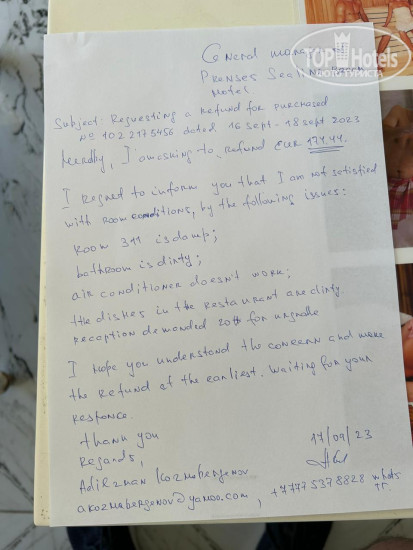 General mana
Prenses Sea View Beach
Hotel.
TOP Hotels
Subject: Requesting a refund for purchased
№ 1022175456 dated 16 sept - 18 sept 2023
I'am asking to refund EUR 174.44.
I regret to inform you that I am not satisfied
with room conditions, by the following issues:
Room 311 is damp;
bathroom is dirty;
air conditioner doesn't work;
the dishes in the restaurant are dirty.
Reception demanded for
I hope you understand the concern and make
the refund at the earliest. Waiting for your
responce.
Thank you
Regards,
17/09/23
Adilzhan Kozmabergenov
akozmabergenov@yahoo.com, +77775378828 whats